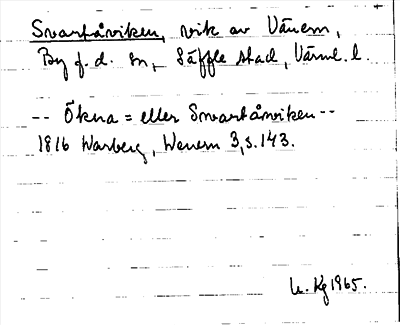 Svartåviken, vik av Vänern,
By f.d. sn, Säffle stad, Värml. l.
-- Ökna = eller Svartåwiken --
1816 Warberg, Wenern 3, s. 143.
Kg 1965.